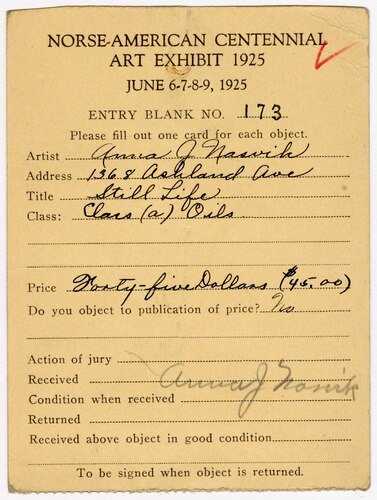 NORSE-AMERICAN CENTENNIAL
ART EXHIBIT 1925
JUNE 6-7-8-9, 1925
ENTRY BLANK NO. 173
Please fill out one card for each object.
Artist Anna J Nasvik
Address 1368 Ashland Ave
Title Still Life
Class: Class (a) Oils.
Price Forty-five Dollars ($45.00)
Do you object to publication of price? No
Action of jury
Received
Condition when received Anna J Nasvik
Returned
Received above object in good condition
To be signed when object is returned.